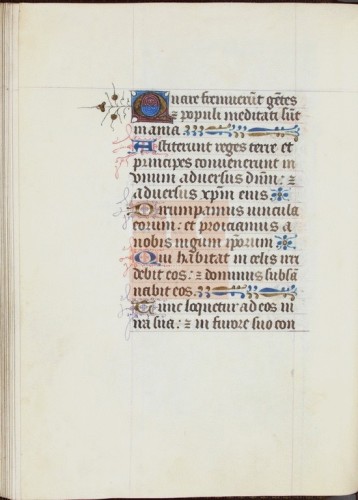 Quare fremuerūt gētes
⁊ populi meditati sūt
inania
Astiterunt reges terre et
principes convenerunt in
vnum adversus dnm̄: ⁊
adversus xpm̄ eius
Dirumpamus vincula
eorum: et proiciamus a
nobis iugum ipsorum
Qui habitat in celis irri
debit eos: ⁊ dominus subsā
nabit eos
Tunc loquetur ad eos in
ira sua: ⁊ in furore suo con